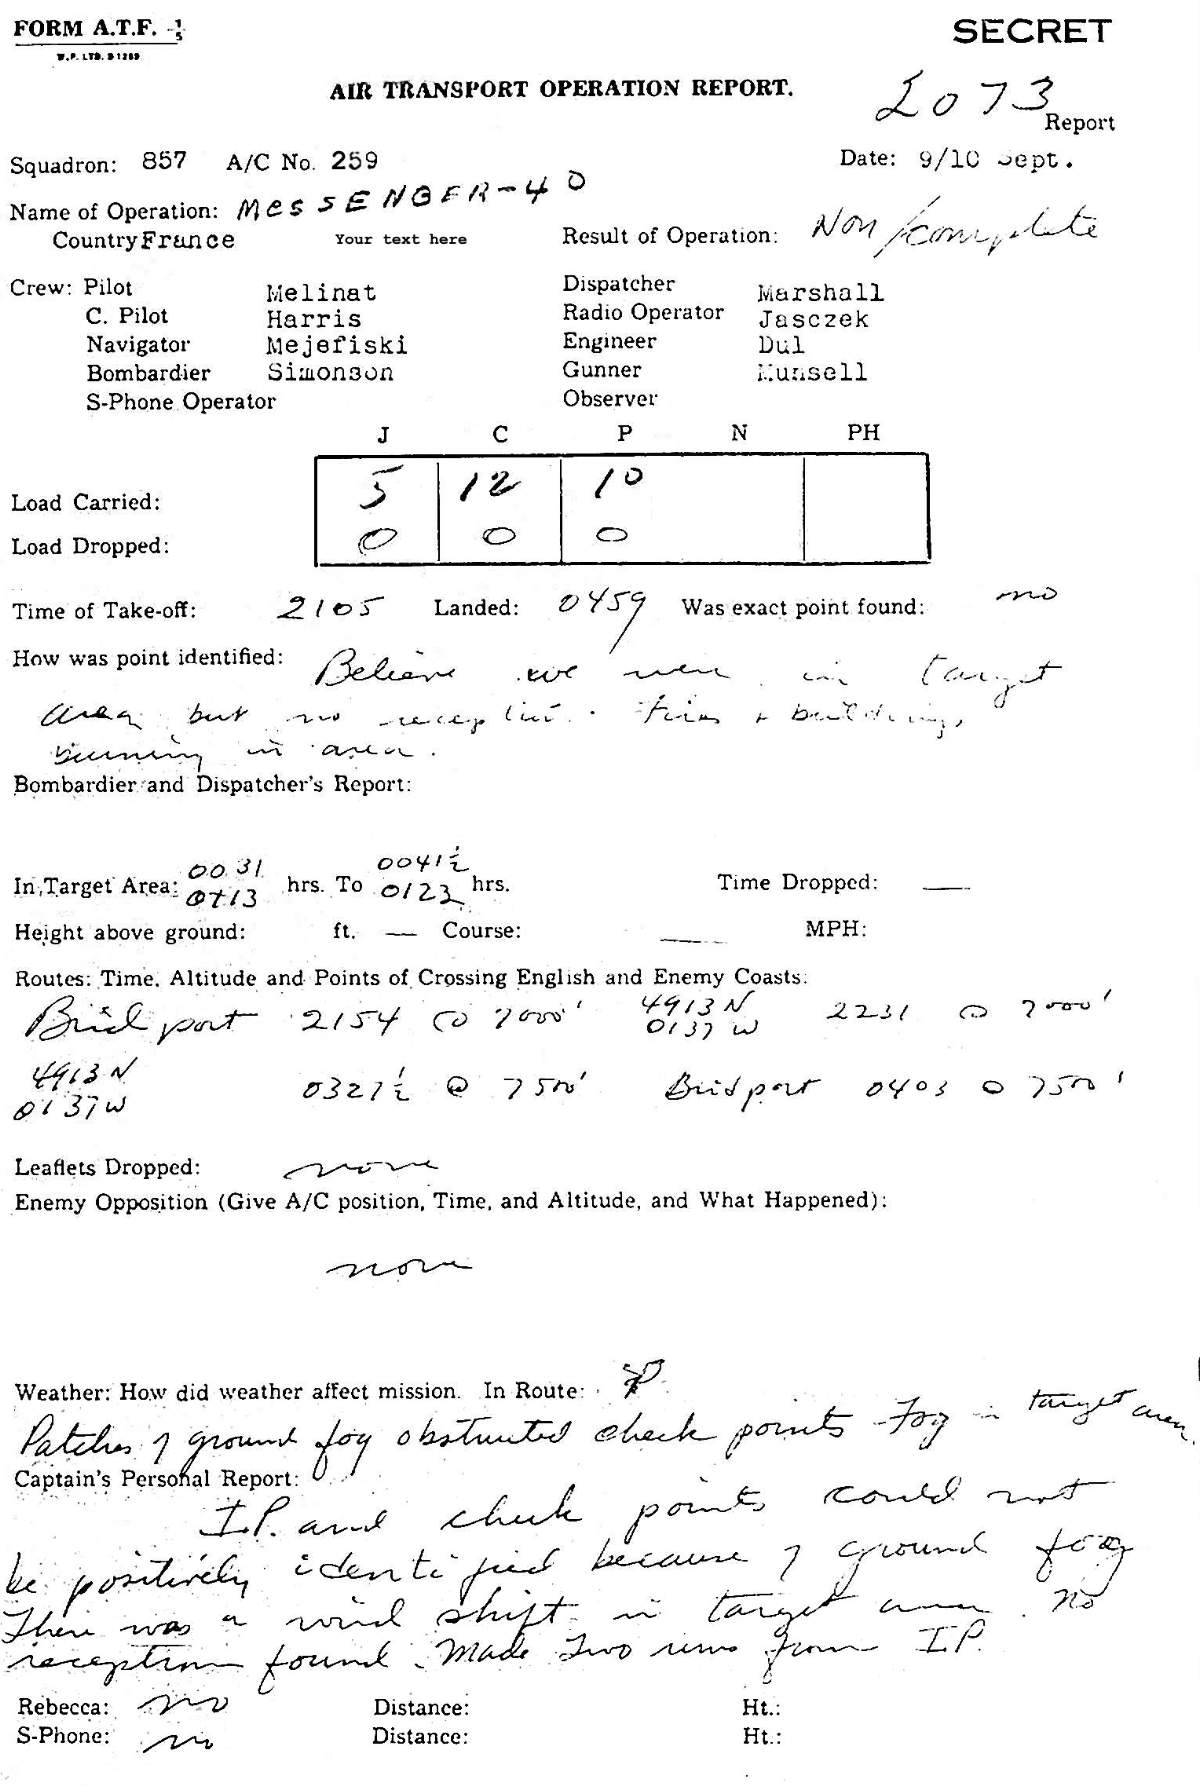 FORM A.T.F. -1/5
SECRET
W.P. LTD. S1269
AIR TRANSPORT OPERATION REPORT.
2073
Report
Squadron: 857 A/C No. 259 Date: 9/10 Sept.
Name of Operation: MESSENGER-40
Country France Your text here Result of Operation: Non/complete
Crew: Pilot Melinat Dispatcher Marshall
C. Pilot Harris Radio Operator Jasczek
Navigator Mejefiski Engineer Dul
Bombardier Simonson Gunner Munsell
S-Phone Operator Observer
J C P N PH
Load Carried: 5 12 10
Load Dropped: 0 0 0
Time of Take-off: 2105 Landed: 0459 Was exact point found: no
How was point identified: Believe we were in target
area but no reception. Fires & buildings
burning in area.
Bombardier and Dispatcher's Report:
0031 0041½
In Target Area: 0113 hrs. To 0123 hrs. Time Dropped: —
Height above ground: ft. — Course: — MPH:
Routes: Time, Altitude and Points of Crossing English and Enemy Coasts.
Bridport 2154 @ 7000' 4913N 0137W 2231 @ 7000'
4913N
0137W 0327½ @ 7500' Bridport 0403 @ 7500'
Leaflets Dropped: none
Enemy Opposition (Give A/C position, Time, and Altitude, and What Happened):
none
Weather: How did weather affect mission. In Route:
Patches of ground fog obstructed check points - Fog in target area.
Captain's Personal Report:
I.P. and check points could not
be positively identified because of ground fog
There was a wind shift in target area. No
reception found. Made two runs from I.P.
Rebecca: no Distance: Ht.:
S-Phone: no Distance: Ht.: